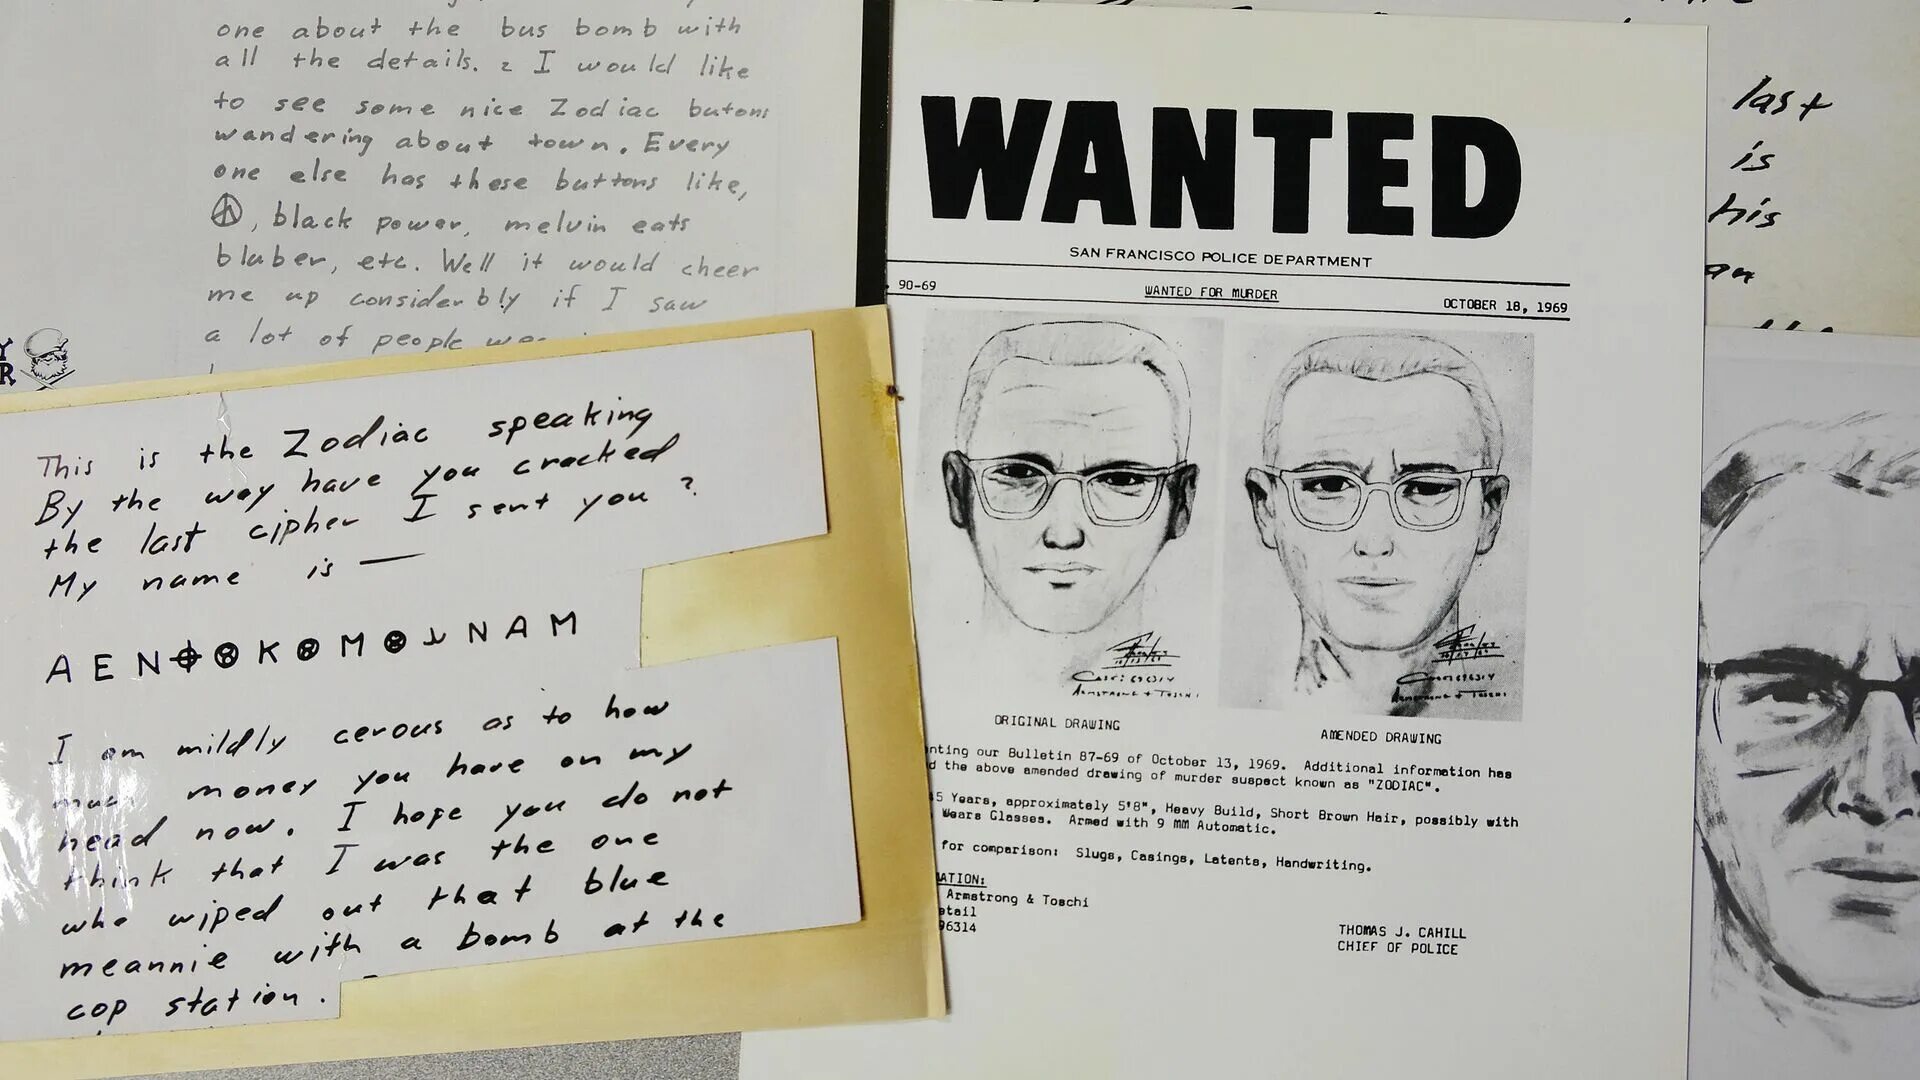 one about the bus bomb with
all the details. I would like
to see some nice Zodiac butons
wandering about town. Every
one else has these buttons like,
, black power, melvin eats
bluber, etc. Well it would cheer
me up considerbly if I saw
a lot of people
This is the Zodiac speaking
By the way have you cracked
the last cipher I sent you ?
My name is —
A E N ⌖ K M N A M
I am mildly cerous as to how
much money you have on my
head now. I hope you do not
think that I was the one
who wiped out that blue
meannie with a bomb at the
cop station.
WANTED
SAN FRANCISCO POLICE DEPARTMENT
90-69 WANTED FOR MURDER OCTOBER 18, 1969
ORIGINAL DRAWING AMENDED DRAWING
nting our Bulletin 87-69 of October 13, 1969. Additional information has
d the above amended drawing of murder suspect known as "ZODIAC".
5 Years, approximately 5'8", Heavy Build, Short Brown Hair, possibly with
Wears Glasses. Armed with 9 MM Automatic.
for comparison: Slugs, Casings, Latents, Handwriting.
ATION:
Armstrong & Toschi
etail
96314
THOMAS J. CAHILL
CHIEF OF POLICE
Armstrong + Toschi
Armstrong + Toschi
last
is
his
an
Y
R